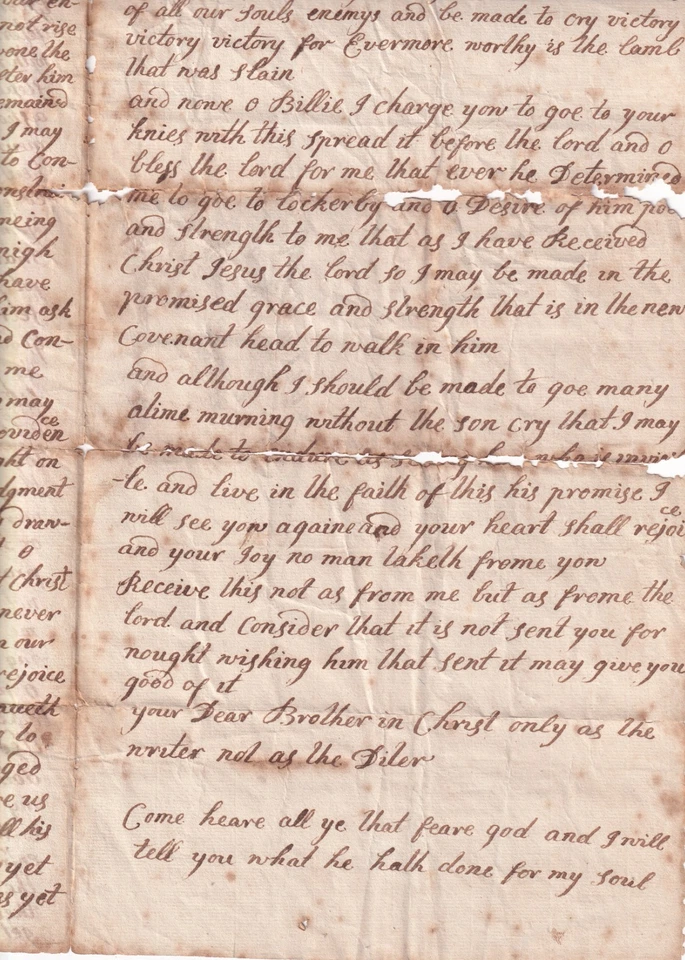 not rise
yone the
ster him
emained
I may
to Con-
neing
nigh
have
him ask
nd Con-
me
may
ovidence
ght on
dgment
draw-
O
Christ
never
n our
rejoice
to
ged
e us
ll his
yet
as yet
of all our souls enemys and be made to cry victory
victory victory for Evermore worthy is the lamb
that was slain
and nowe O Billie I charge yow to goe to your
knies with this spread it before the lord and O
bless the lord for me that ever he Determined
me to goe to Lockerby and O Desire of him
and strength to me that as I have Received
Christ Jesus the lord so I may be made in the
promised grace and strength that is in the new
Covenant head to walk in him
and although I should be made to goe many
atime murning without the son cry that I may
be made to indure as seeing him who is invisi
-le. and live in the faith of this his promise I
will see yow againe and your heart shall rejoice
and your Joy no man taketh frome yow
Receive this not as from me but as frome the
lord and Consider that it is not sent you for
nought wishing him that sent it may give you
good of it
your Dear Brother in Christ only as the
writer not as the Diter
Come heare all ye that feare god and I will
tell you what he hath done for my soul